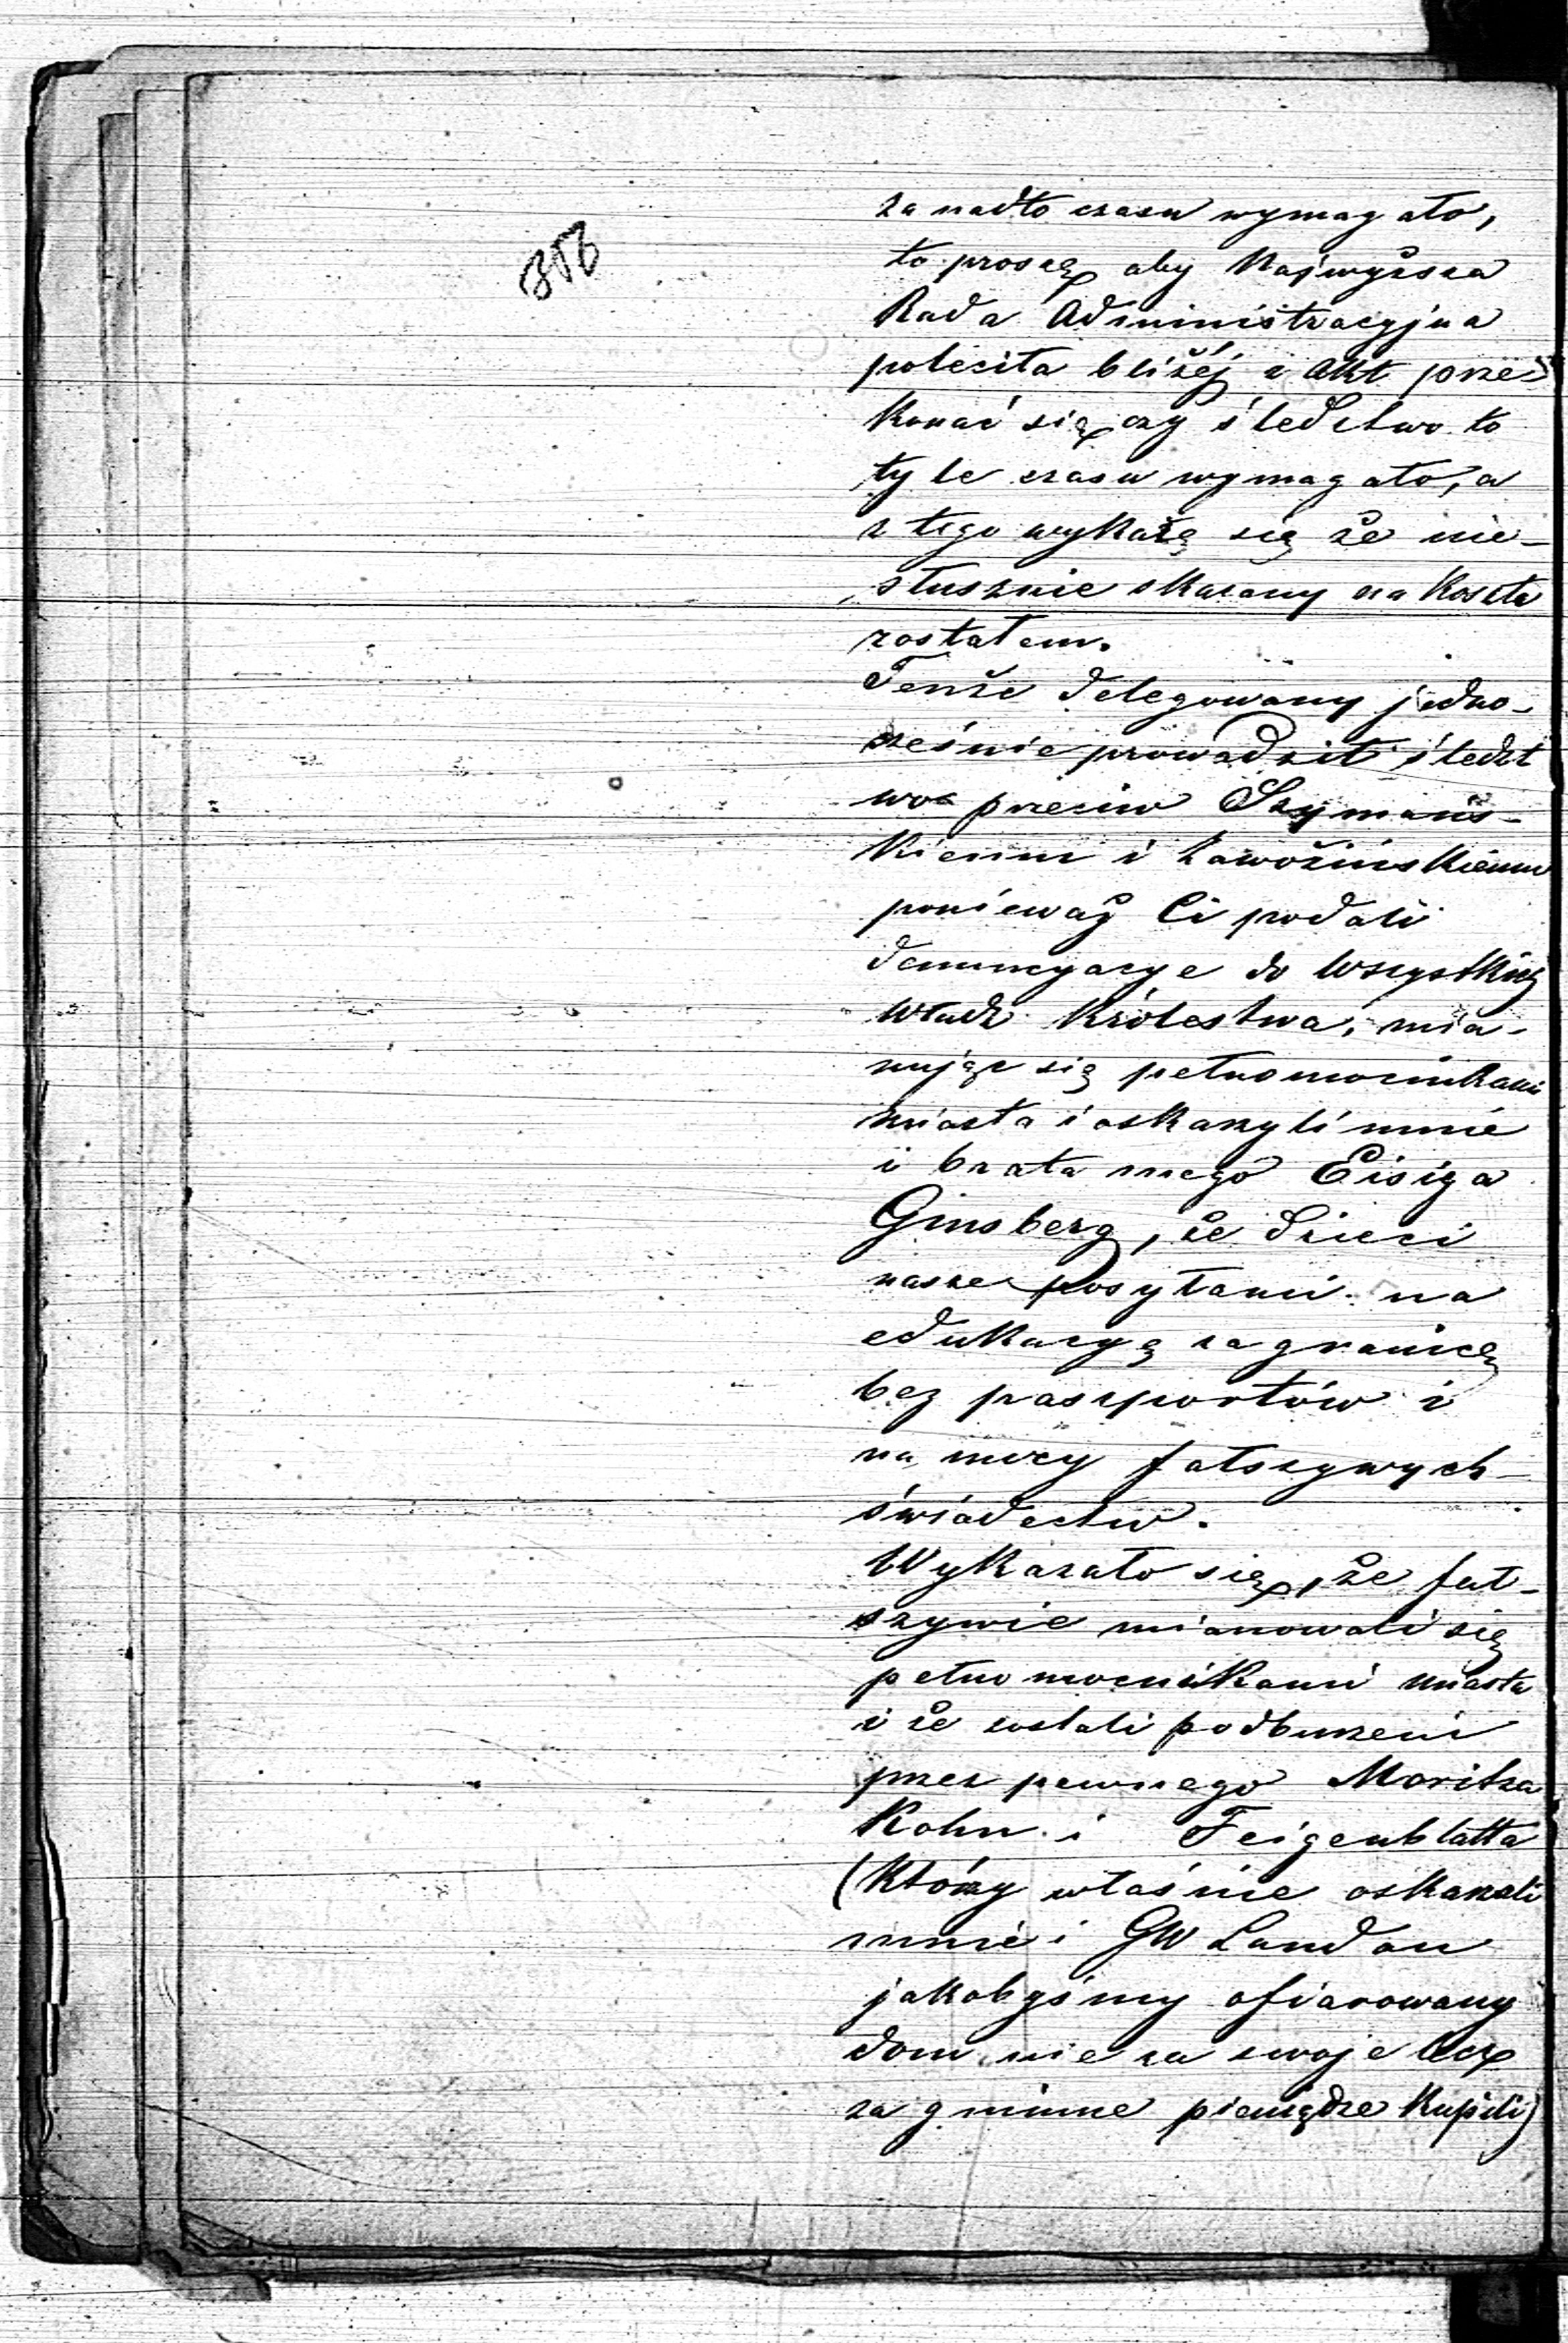 358
za nadto czasu wymagało,
to proszę aby Najwyższa
Rada Administracyjna
poleciła bliżéj z akt prze-
konać się czy śledztwo to
tyle czasu wymagało, a
z tego wykażę się że nie-
słusznie skazany na koszta
zostałem.
Tenże delegowany jedno-
cześnie prowadził śledzt
wo przeciw Szymańs-
kiemu i
ponieważ Ci podali
denuncyacye do wszystkich
Władz Królestwa, mia-
nując się pełnomocnikami
miasta i oskarzyli mnie
i brata mego Eisiga
Ginsberg, że dzieci
nasze posyłami na
edukacyę zagranicę
bez paszportów i
na mocy fałszywych
świadectw.
Wykazało się, że fał-
szywie mianowali się
pełnomocnikami miasta
i że zostali podburzeni
przez pewnego Moritza
Kohn i Feigenblatta
(Którzy właśnie oskarzali
mnie i GW Landau
jakobyśmy ofiarowany
dom nie za swoje lecz
za gminne pieniądze kupili)